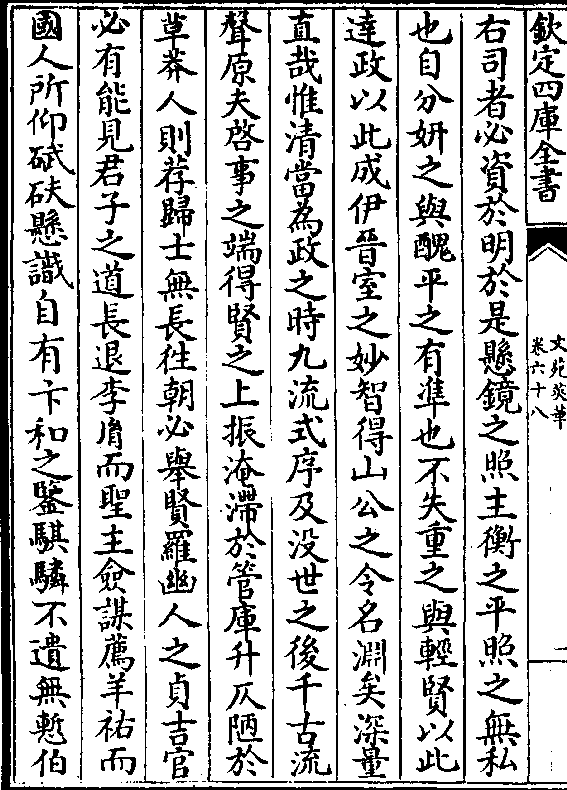 欽定四庫全書
文苑英華
卷六十八
右司者必資於明於是懸鏡之照主衡之平照之無私
也自分妍之與醜平之有準也不失重之與輕賢以此
達政以此成伊晉室之妙智得山公之令名淵矣深量
直哉惟清當為政之時九流式序及没世之後千古流
聲原夫啓事之端得賢之上振淹滯於管庫升仄陋於
草莽人則荐歸士無長徃朝必舉賢羅幽人之貞吉官
必有能見君子之道長退李胤而聖主僉謀薦羊祐而
國人所仰碔砆懸識自有卞和之鑒騏驎不遺無慙伯